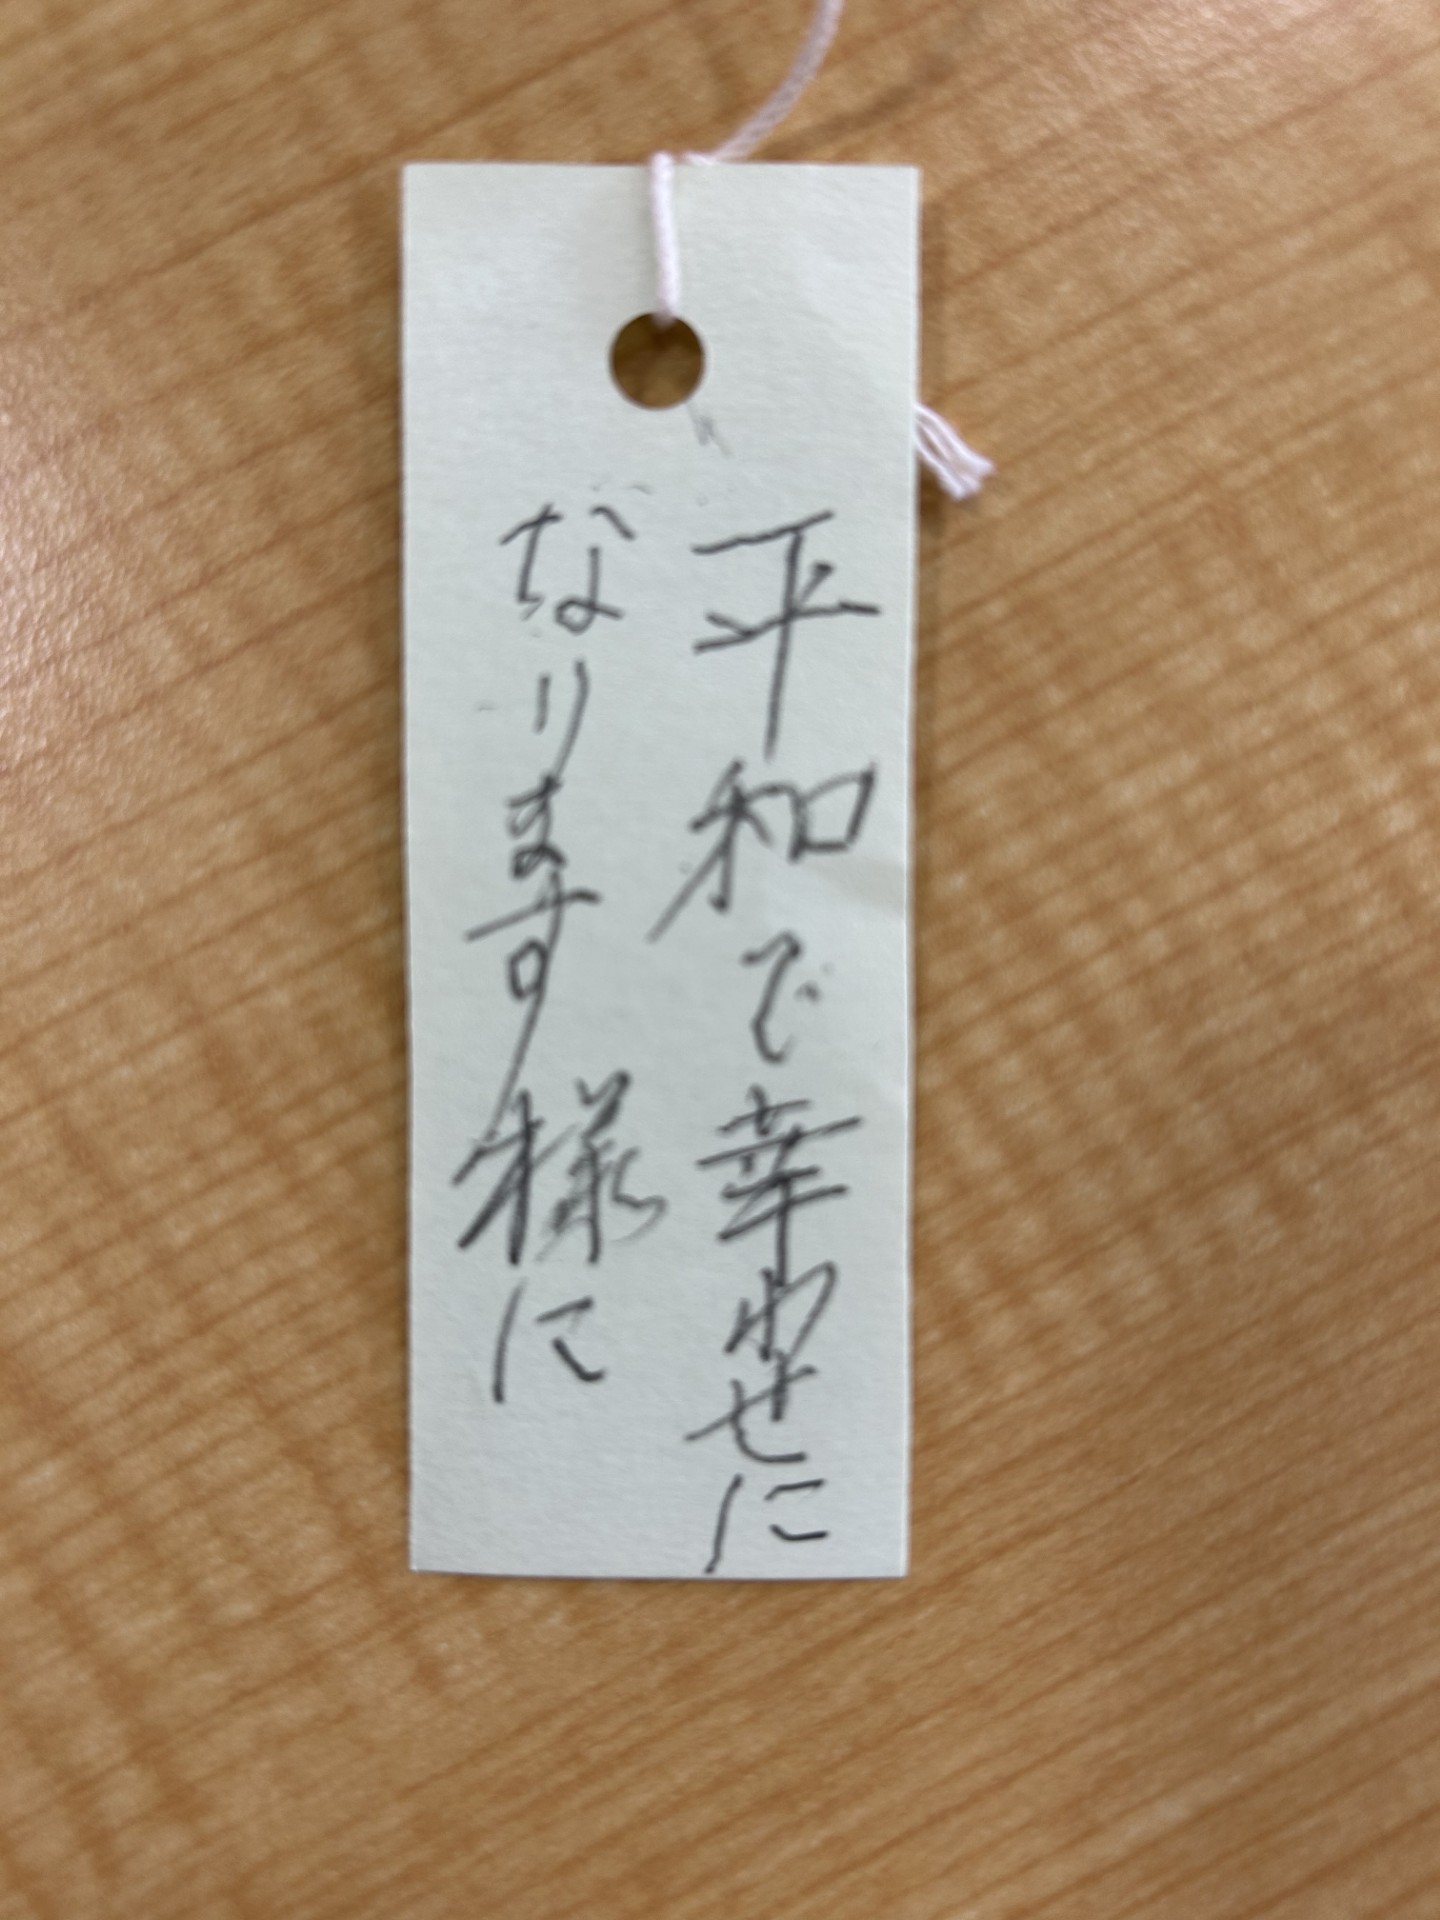 平和で幸わせに
なります様に